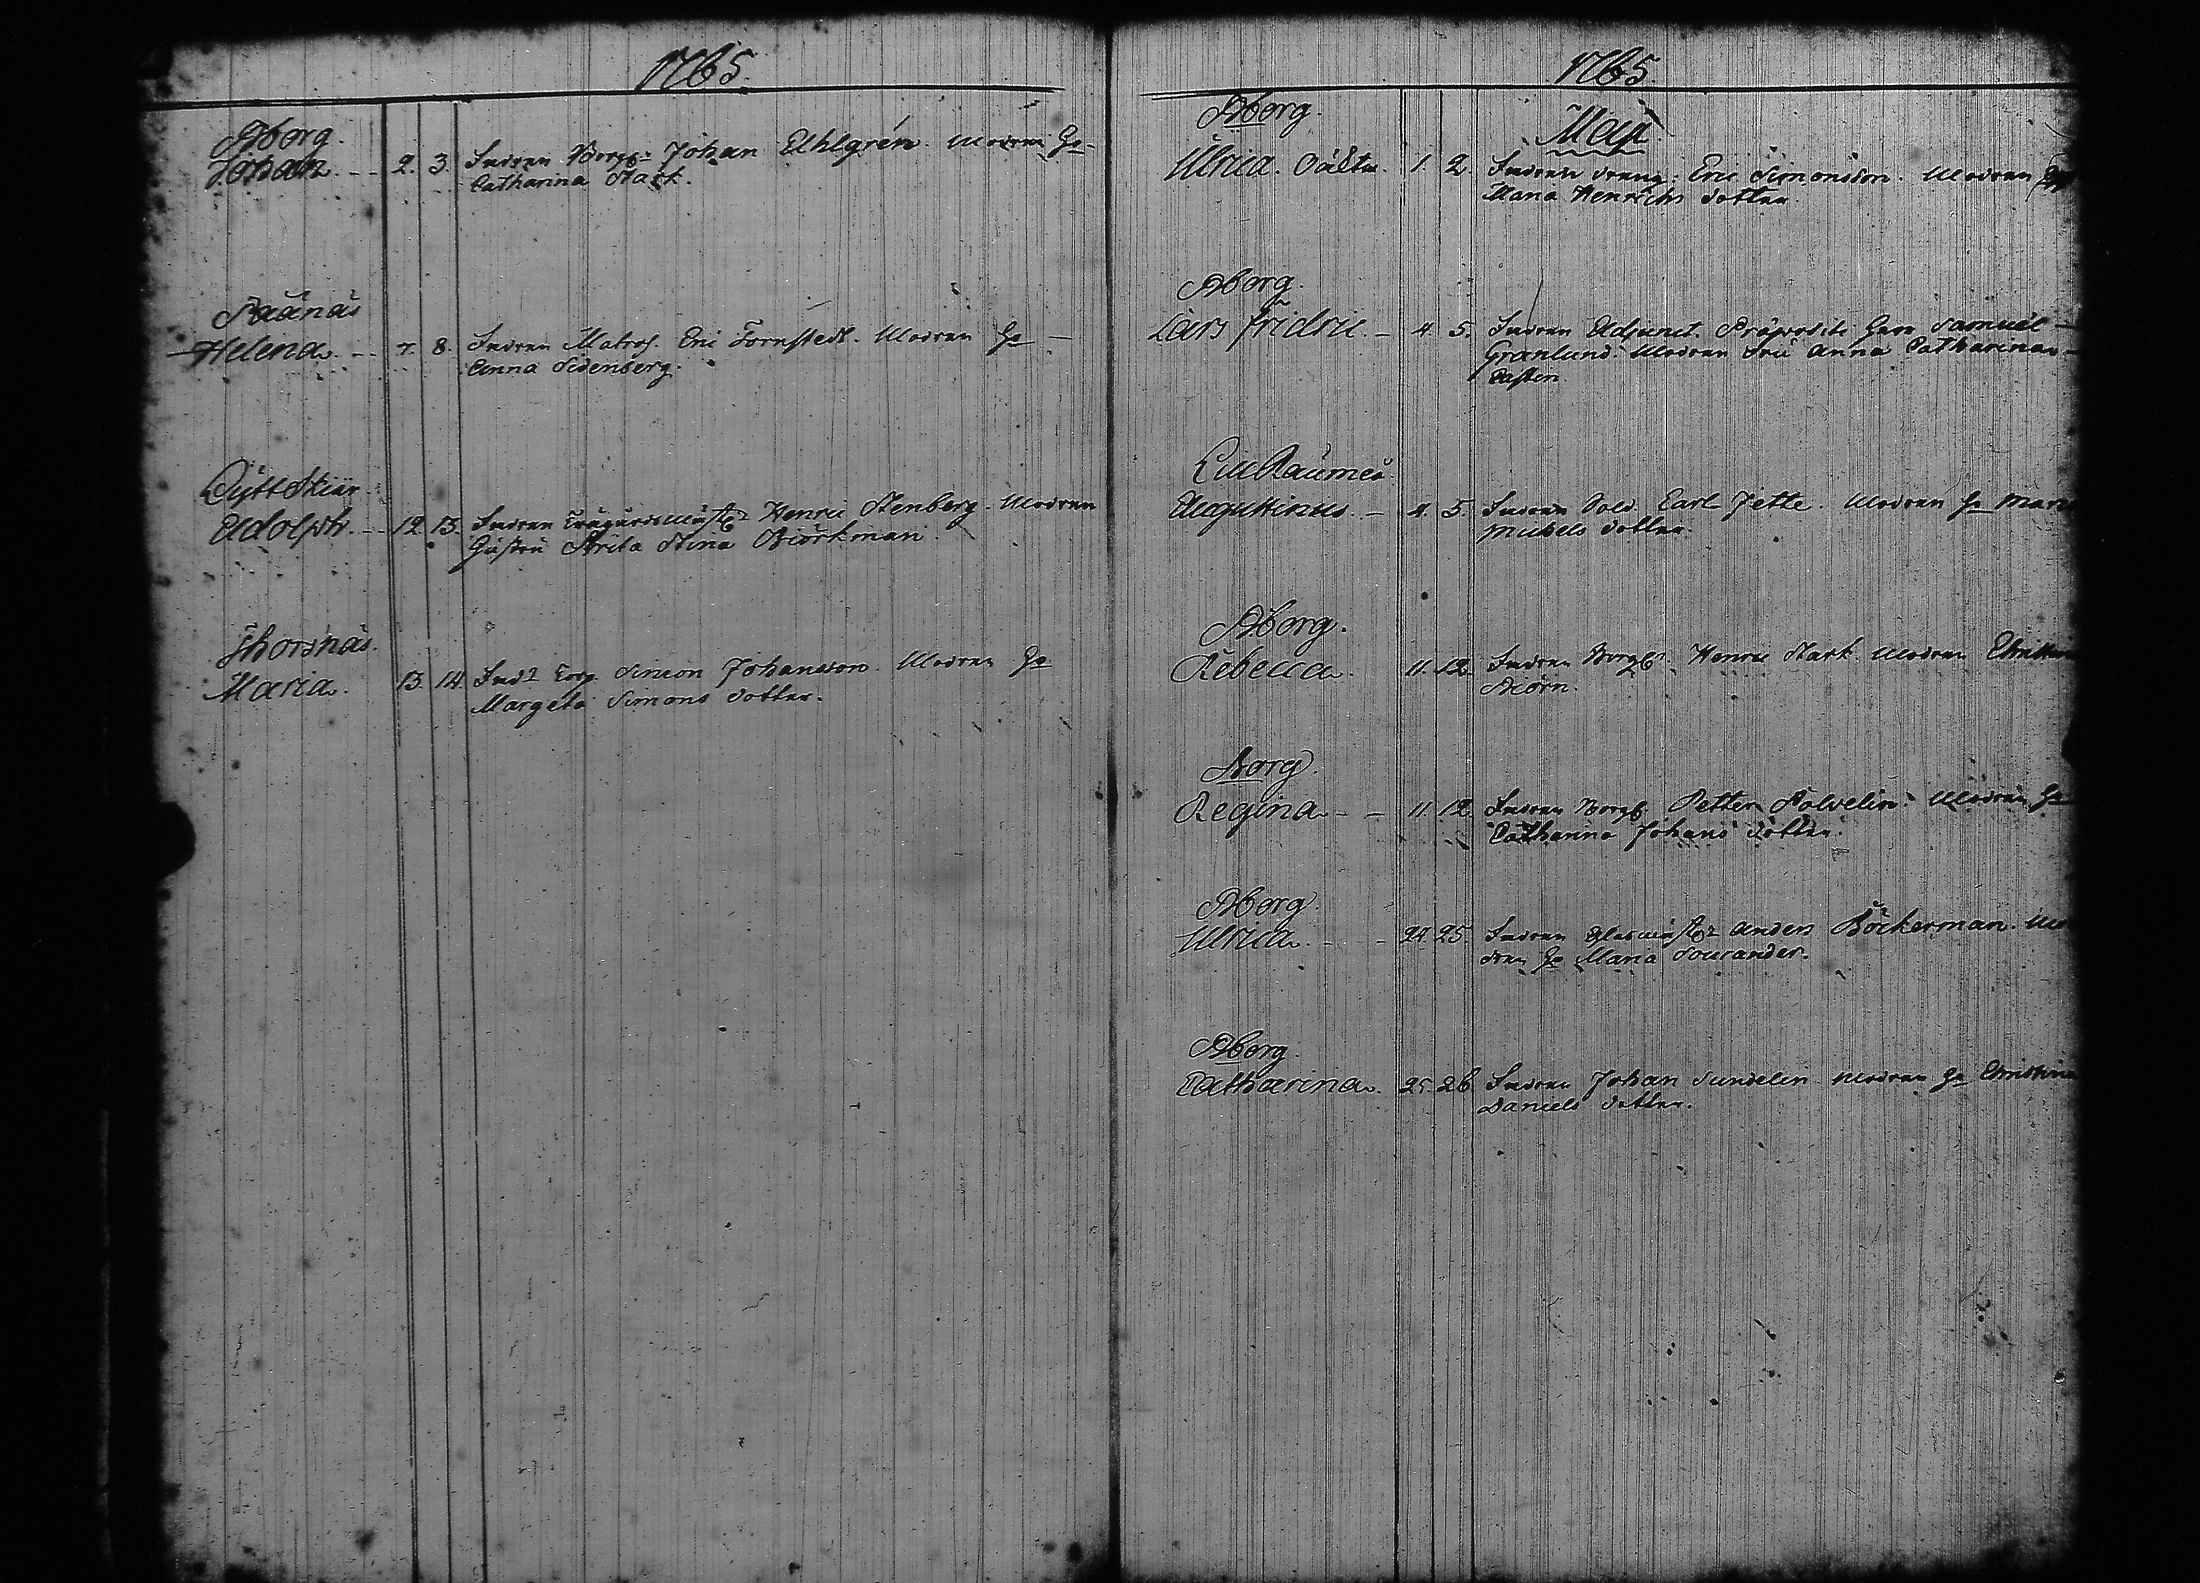 1765.
Bborg.
Johan. - - 2. 3. Fadren Borg: Johan Ahlgrén. Modren H:
Catharina Stark.
Raanäs
Helena. - - 7. 8. Fadren Matros. Eric Fornstedt. Modren H:
Anna Sidenberg.
Adolph. - 12. 13. Fadren Trägårdsmäst: Henric Stenberg. Modren
Hustru Brita Stina Biörkman.
Thorsnäs.
Maria. 13. 14. Fad: Simon Johansson. Modren H:
Margeta Simons dotter.
1765.
Bborg.
Maji
Ulrica. 1. 2. Fadren dräng: Eric Simonsson. Modren
Maria Henrichs dotter.
Bborg.
Lars Fridric. - 4. 5. Fadren Adjunct. Præpositi Herr Samuel
Granlund. Modren Fru Anna Catharina
Pastin.
Lill Raumeå.
Augustinus. - 4. 5. Fadren Sold. Carl Jette. Modren H: Mar
Michels dotter.
Bborg.
Rebecca. 11. 12. Fadren Borg: Henric Stark. Modren Christina
Biörn.
Bborg.
Regina - - 11. 12. Fadren Borg: Petter Polvelin. Modren H:
Catharina Johans dotter.
Bborg.
Ulrica. - - 24. 25. Fadren Glasmäst: Anders Böckerman. Mo
dren H: Maria Sourander.
Bborg.
Catharina. 25. 26. Fadren Johan Sundelin. Modren H: Christina
Daniels dotter.